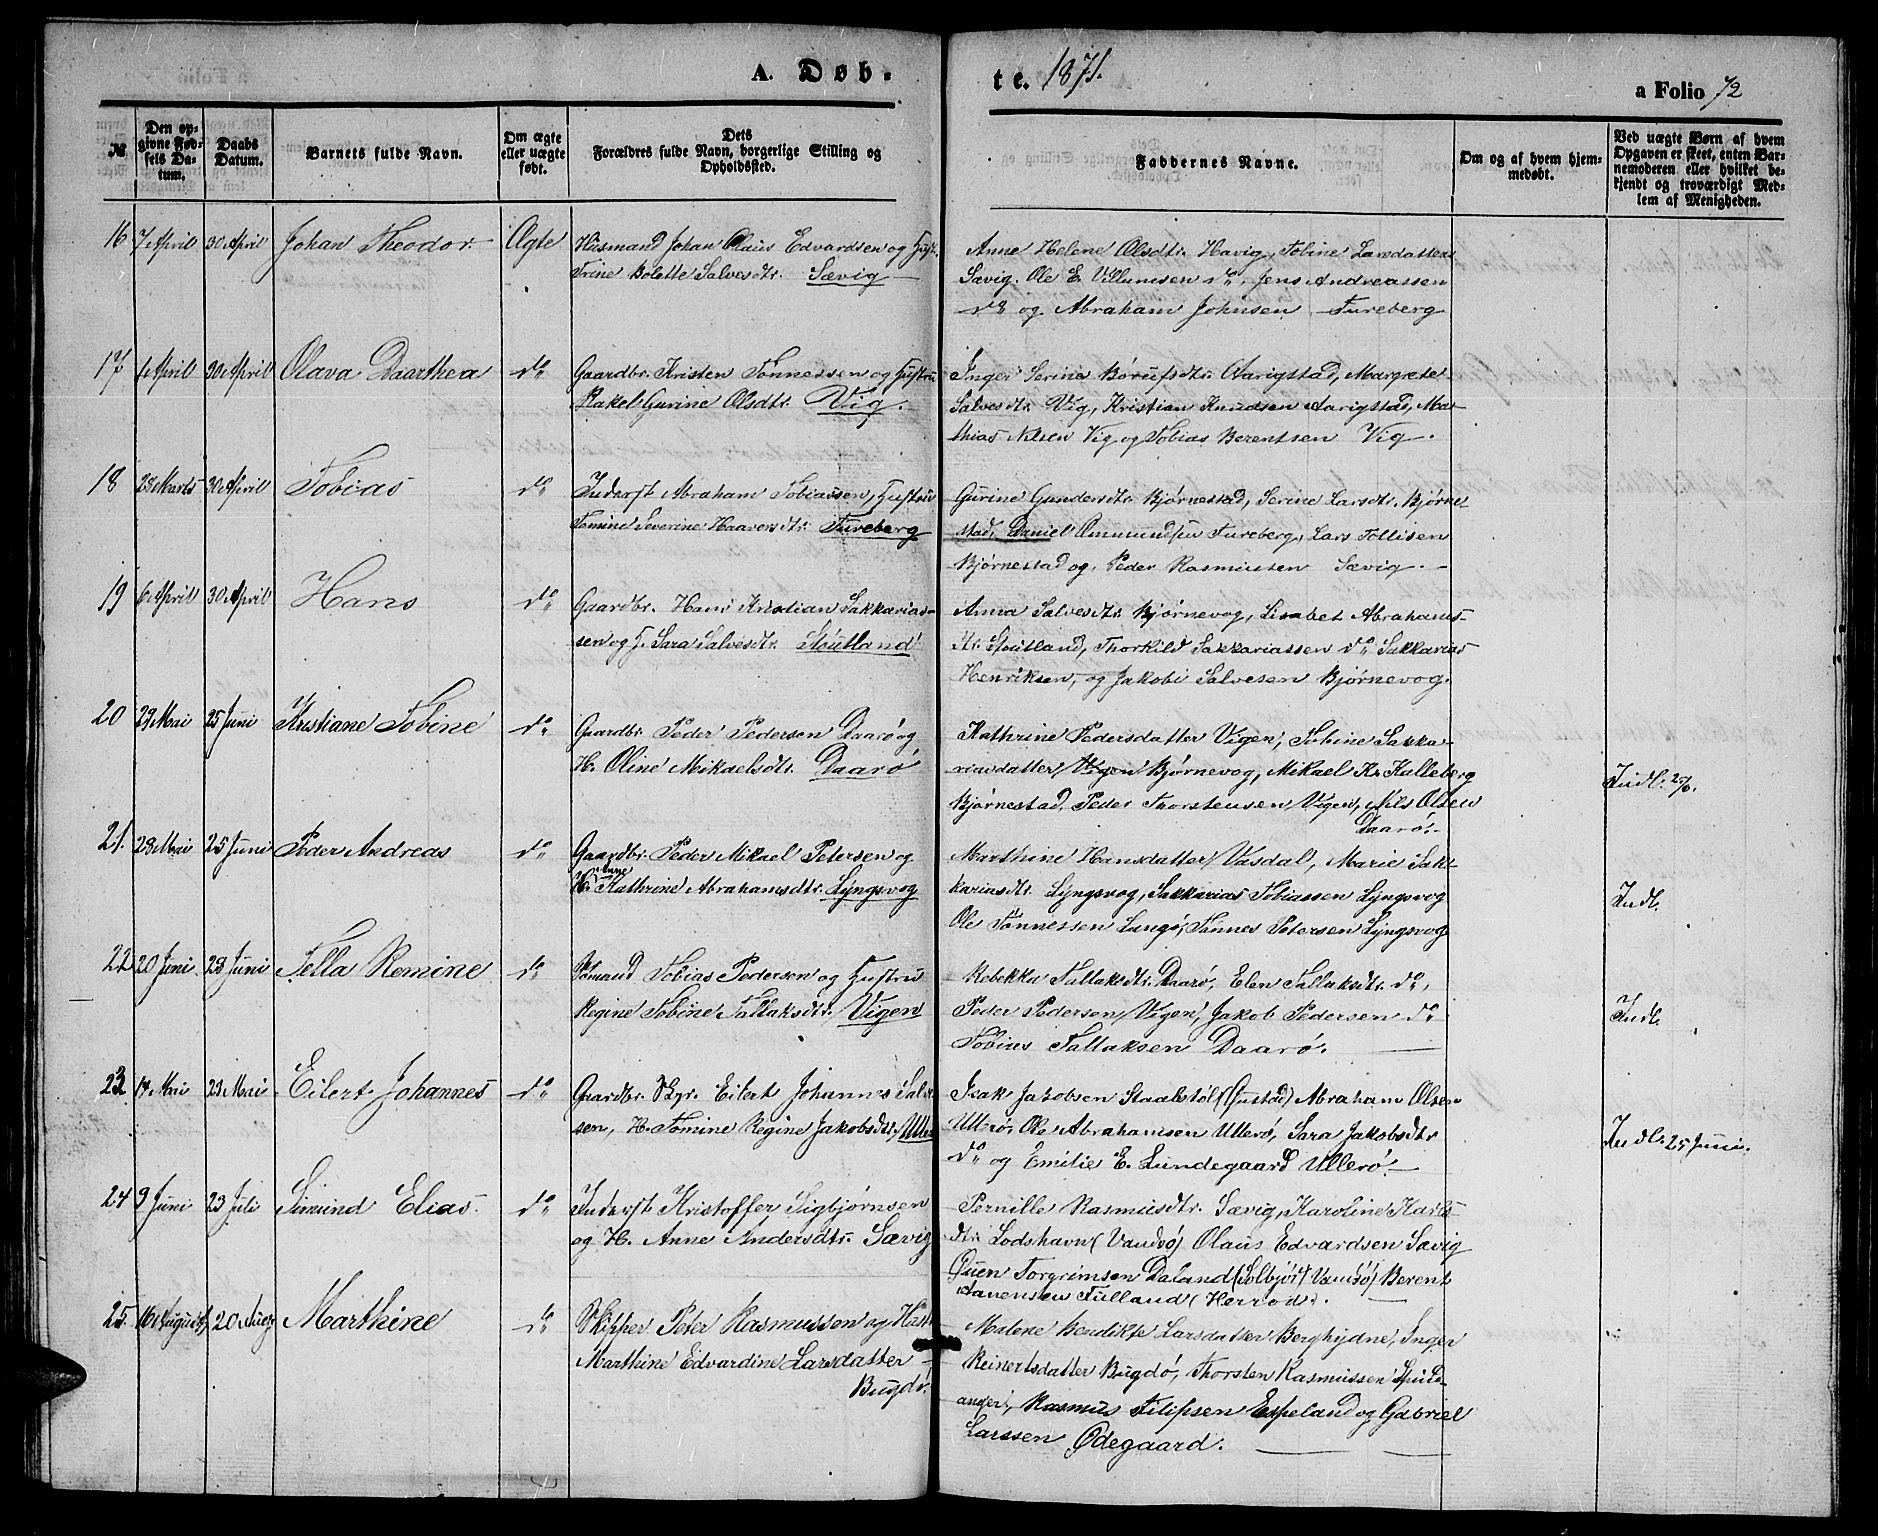 A. Døb-
te. 1871.
a Folio 72
№
Den op-
givne Fød-
sels Da-
tum.
Daabs
Datum.
Barnets fulde Navn.
Om ægte
eller uægte
født.
Dets
Forældres fulde Navn, borgerlige Stilling og
Opholdssted.
Faddernes Navne.
Om og af hvem hjem-
medøbt.
Ved uægte Børn af hvem
Opgaven er skeet, enten Bar-
nemoderen eller hvilket be-
kjendt og troværdigt Med-
lem af Menigheden.
16 7 April 30 April Johan Theodor Ægte
Husmand Johan Olaus Edvardsen og Hustr.
Trine Bolette Salvesdtr. Sævig
Anne Helene Olsdtr. Havig, Tobine Larsdatter
Sævig. Ole E. Villumsen do, Jens Andreassen
do og Abraham Johnsen Fureberg
17 1 April 30 April Olava Daarthea do
Gaardbr. Kristen Tønnessen og Hustru
Rakel Gurine Olsdtr. Vig.
Inger Serine Børufsdtr. Aarigstad, Margrete
Salvesdtr. Vig, Kristian Knudsen Aarigstad, Mat-
thias Nilsen Vig og Tobias Berentsen Vig.
18 28 Marts 30 April Tobias do
Inderst Abraham Tobiassen, Hustru
Tomine Severine Haaversdtr. Fureberg
Gurine Gundersdtr. Bjørnestad, Serine Larsdtr. Bjørne-
stad, Daniel Ommundsen Fureberg, Lars Tollisen
Bjørnestad og Peder Rasmussen Sævig.
19 6 April 30 April Hans do
Gaardbr. Hans Kristian Sakkarias-
sen og H. Sara Salvesdtr. Stoutland
Anna Salvesdtr. Bjørnevog, Lisabet Abrahams-
dtr. Stoutland, Thorkild Sakkariassen do Sakkarias
Henriksen, og Jakobi Salvesen Bjørnevog.
20 29 Mai 25 Juni Kristiane Tobine do
Gaardbr. Peder Pedersen Daarø og
H. Oline Mikaelsdtr. Daarø
Kathrine Pedersdatter Vigen, Tobine Sakka-
riasdatter Vigen Bjørnevog, Mikael Kr. Kalleberg
Bjørnestad, Peder Thorstensen Vigen, Nils Olsen
Daarø.
Indl. 25/6.
21. 28 Mai 25 Juni Peder Andreas do
Gaardbr. Peder Mikael Petersen og
H. Anne Kathrine Abrahamsdtr. Lyngsvog
Marthine Hansdatter Vasdal, Marie Sak-
kariasdtr. Lyngsvog, Sakkarias Tobiassen Lyngsvog
Ole Tønnessen Langø, Tønnes Petersen Lyngsvog
Indl.
22 20 Juni 23 Juni Tella Remine do
Tobias Pedersen og Hustru
Regine Tobine Tallaksdtr. Vigen
Rebekka Tallaksdtr. Daarø, Elen Tallaksdtr. do,
Peder Pedersen Vigen, Jakob Pedersen do
Tobias Tallaksen Daarø.
Indl.
23 14 Mai 21 Mai Eilert Johannes do
Gaardbr. Skpr. Eilert Johannes Salve-
sen, H. Tomine Regine Jakobsdtr. Ullerø
Isak Jakobsen Staalstøl (Gustad) Abraham Olsen
Ullerø, Ole Abrahamsen Ullerø, Sara Jakobsdtr
do og Emilie E. Lundegaard Ullerø.
Indl. 25 Juni.
24 9 Juni 23 Juli Simund Elias. do
Inderst Kristoffer Sigbjørnsen
og H. Anne Andersdtr. Sævig
Pernille Rasmusdtr. Sævig, Karoline Karls-
dtr. Lodshavn (Vandsø) Olaus Edvardsen Sævig
Torgrimsen Daland Vandsø) Berent
Tanensen Tulland (Herrod).
25. 16 August 20 Aug. Marthine do
Skipper Peter Rasmussen og Hustr.
Marthine Edvardine Larsdatter
Bugdø.
Malene Bendikte Larsdatter Berghydne, Inger
Reinertsdatter Bugdø, Thorsten Rasmussen Spids-
anger, Rasmus Filipsen Espeland og Gabriel
Larssen Ødegaard.